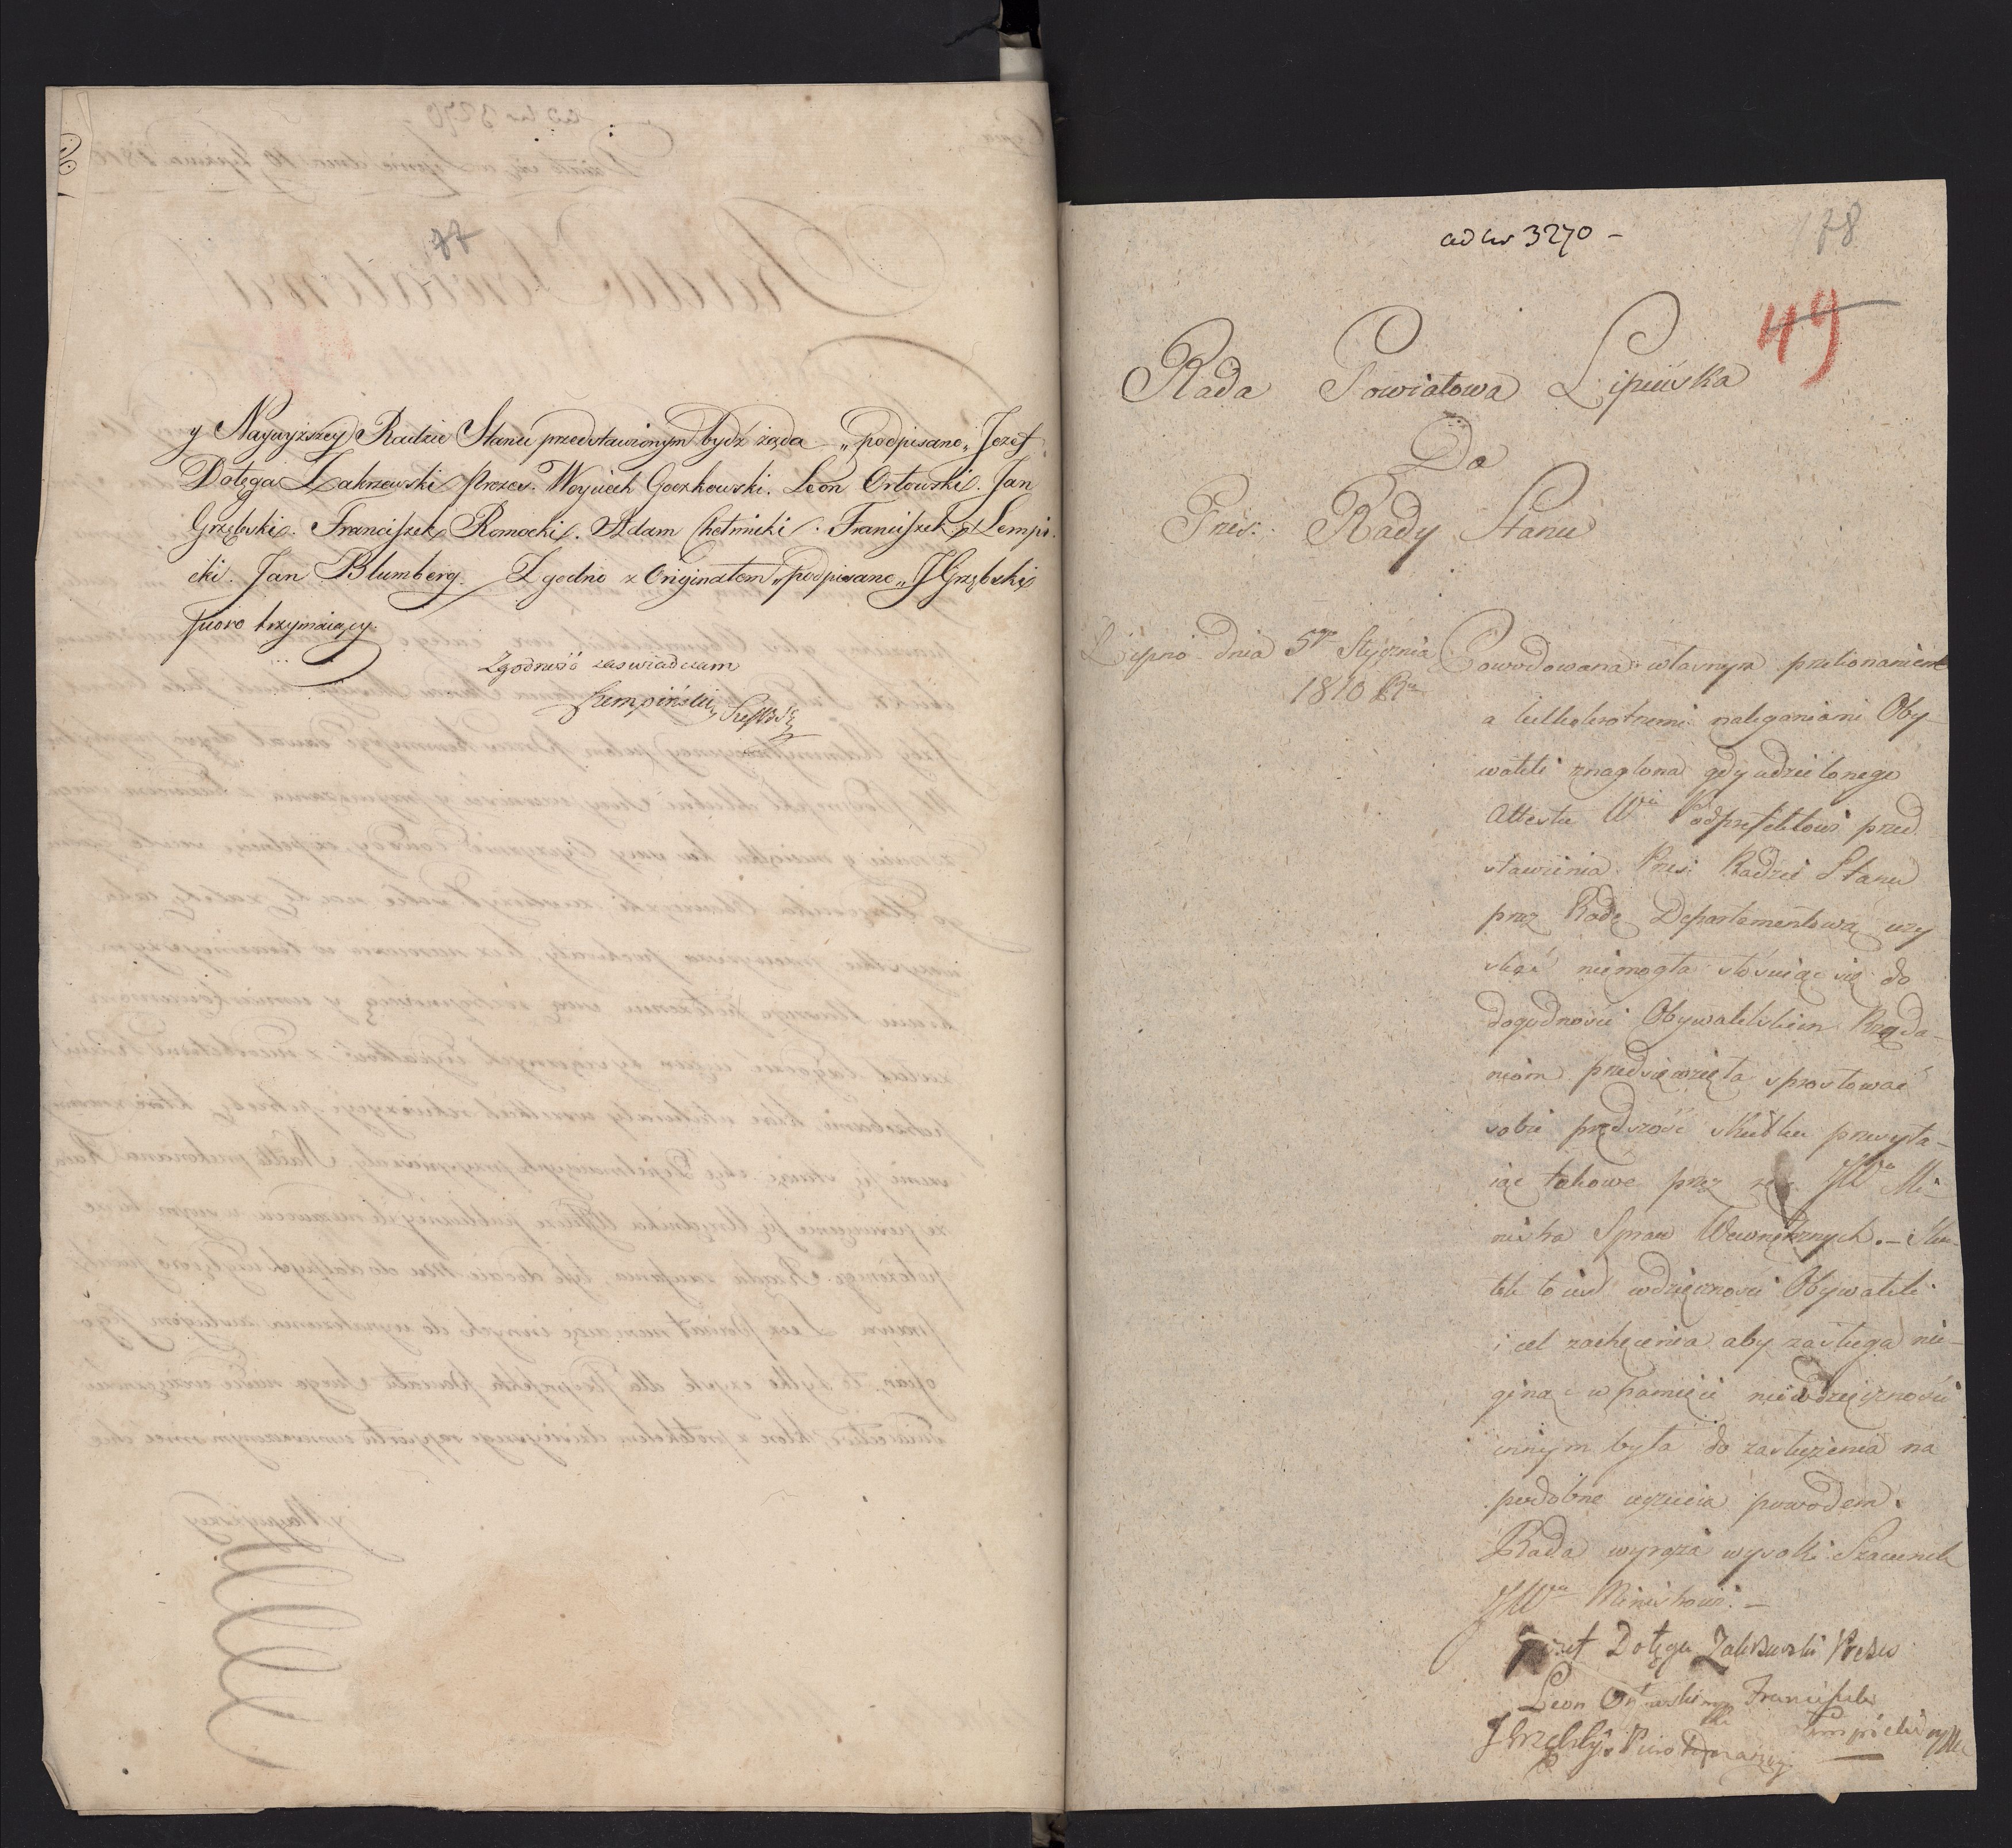 y Naywyższey Radzie Stanu przedstawionym bydź żąda – „podpisano„ Jozef
Dołęga Zakrzewski Prezes. Woyciech Goczkowski. Leon Orłowski. Jan
Grzębski. Franciszek Romocki. Adam Chełmicki. Franciszek Lempi
cki. Jan Blumberg. Zgodno z Originałem „podpisano„ J Grzębski
pioro trzymaiący.
Zgodność zaswiadczam
ad nr 3270 –
178
49
Rada Powiatowa Lipińska
Do
Prześ: Rady Stanu
Lipno dnia 5go Stycznia
1810 Ru
Powodowana własnym przekonaniem
a kilkokrotnemi naleganiami Oby
wateli znaglona gdy udzielonego
Attestu Wu Podprefektowi przed
stawienia Prześ: Radzie Stanu
przez Radę Departamentową uzy
skać niemogła stósuiąc się do
dogodności Obywatelskiem Żąda
niom przedsięwzięła sprostować
sobie prędszość skutku przesyła–
iąc takowe przez ręce JWo Mi–
nistra Spraw Wewnętrznych. – Sku–
tek to iest wdzięczności Obywateli
i cel zachęcenia aby zasługa nie–
ginąc w pamięci niewdzięczności
innym była do zasłużenia na
podobne uczucia powodem.
Rada wyraża wysoki Szacunek
JWu Ministrowi. –
Jozef Dołęga Zakrzewski Prezes
Leon Orłowski Franciszek
J Grzębski Pioro trzymaiący Lempicki